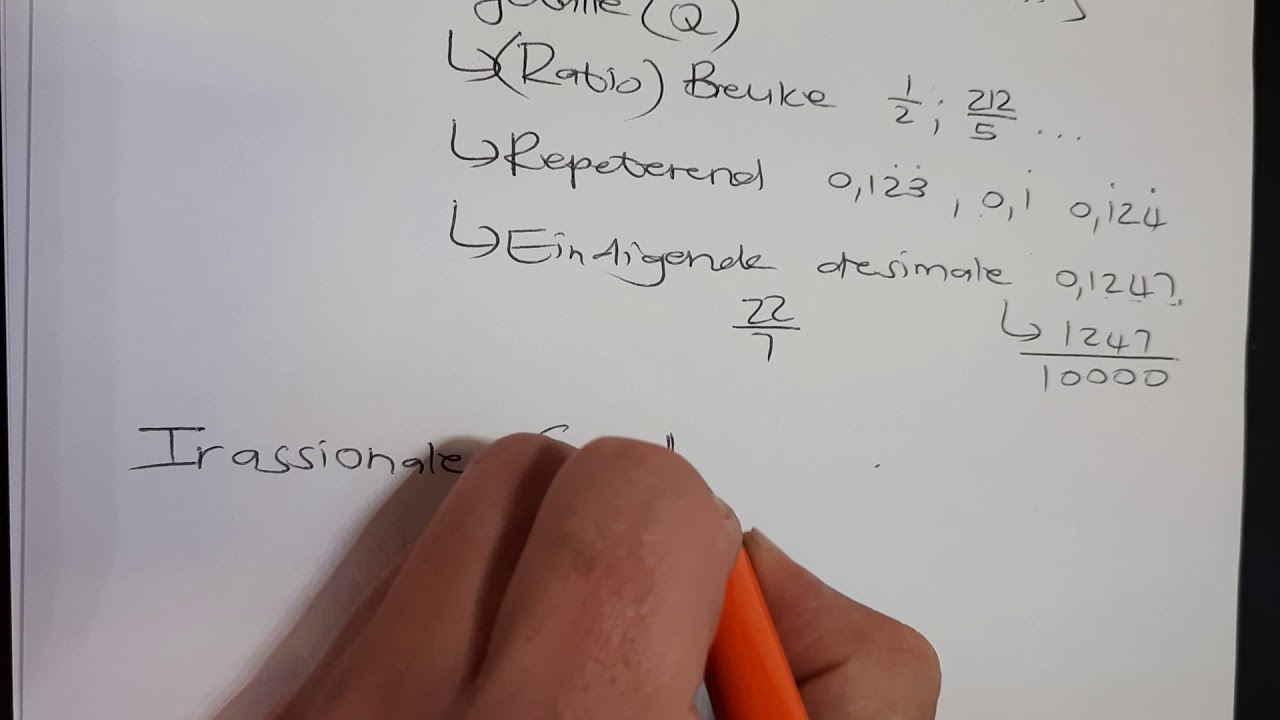 (Q)
↳ (Ratio) Breuke 1/2 ; 212/5 ...
↳ Repeterend 0,12̇3̇ , 0,1̇ 0,1̇24̇
↳ Eindigende desimale 0,1247.
22/7 ↳ 1247/10000
Irassionale